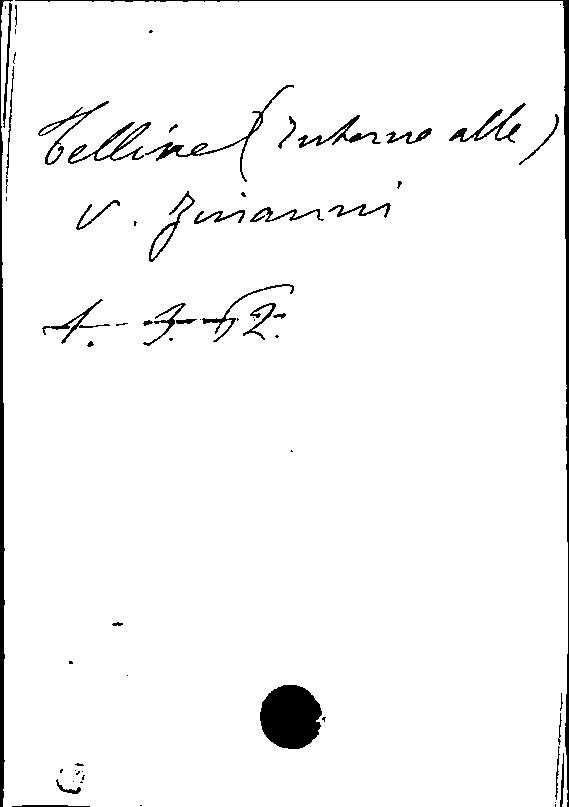 Telline (Intorno alle)
V. Zinanni
1. 3. 62.